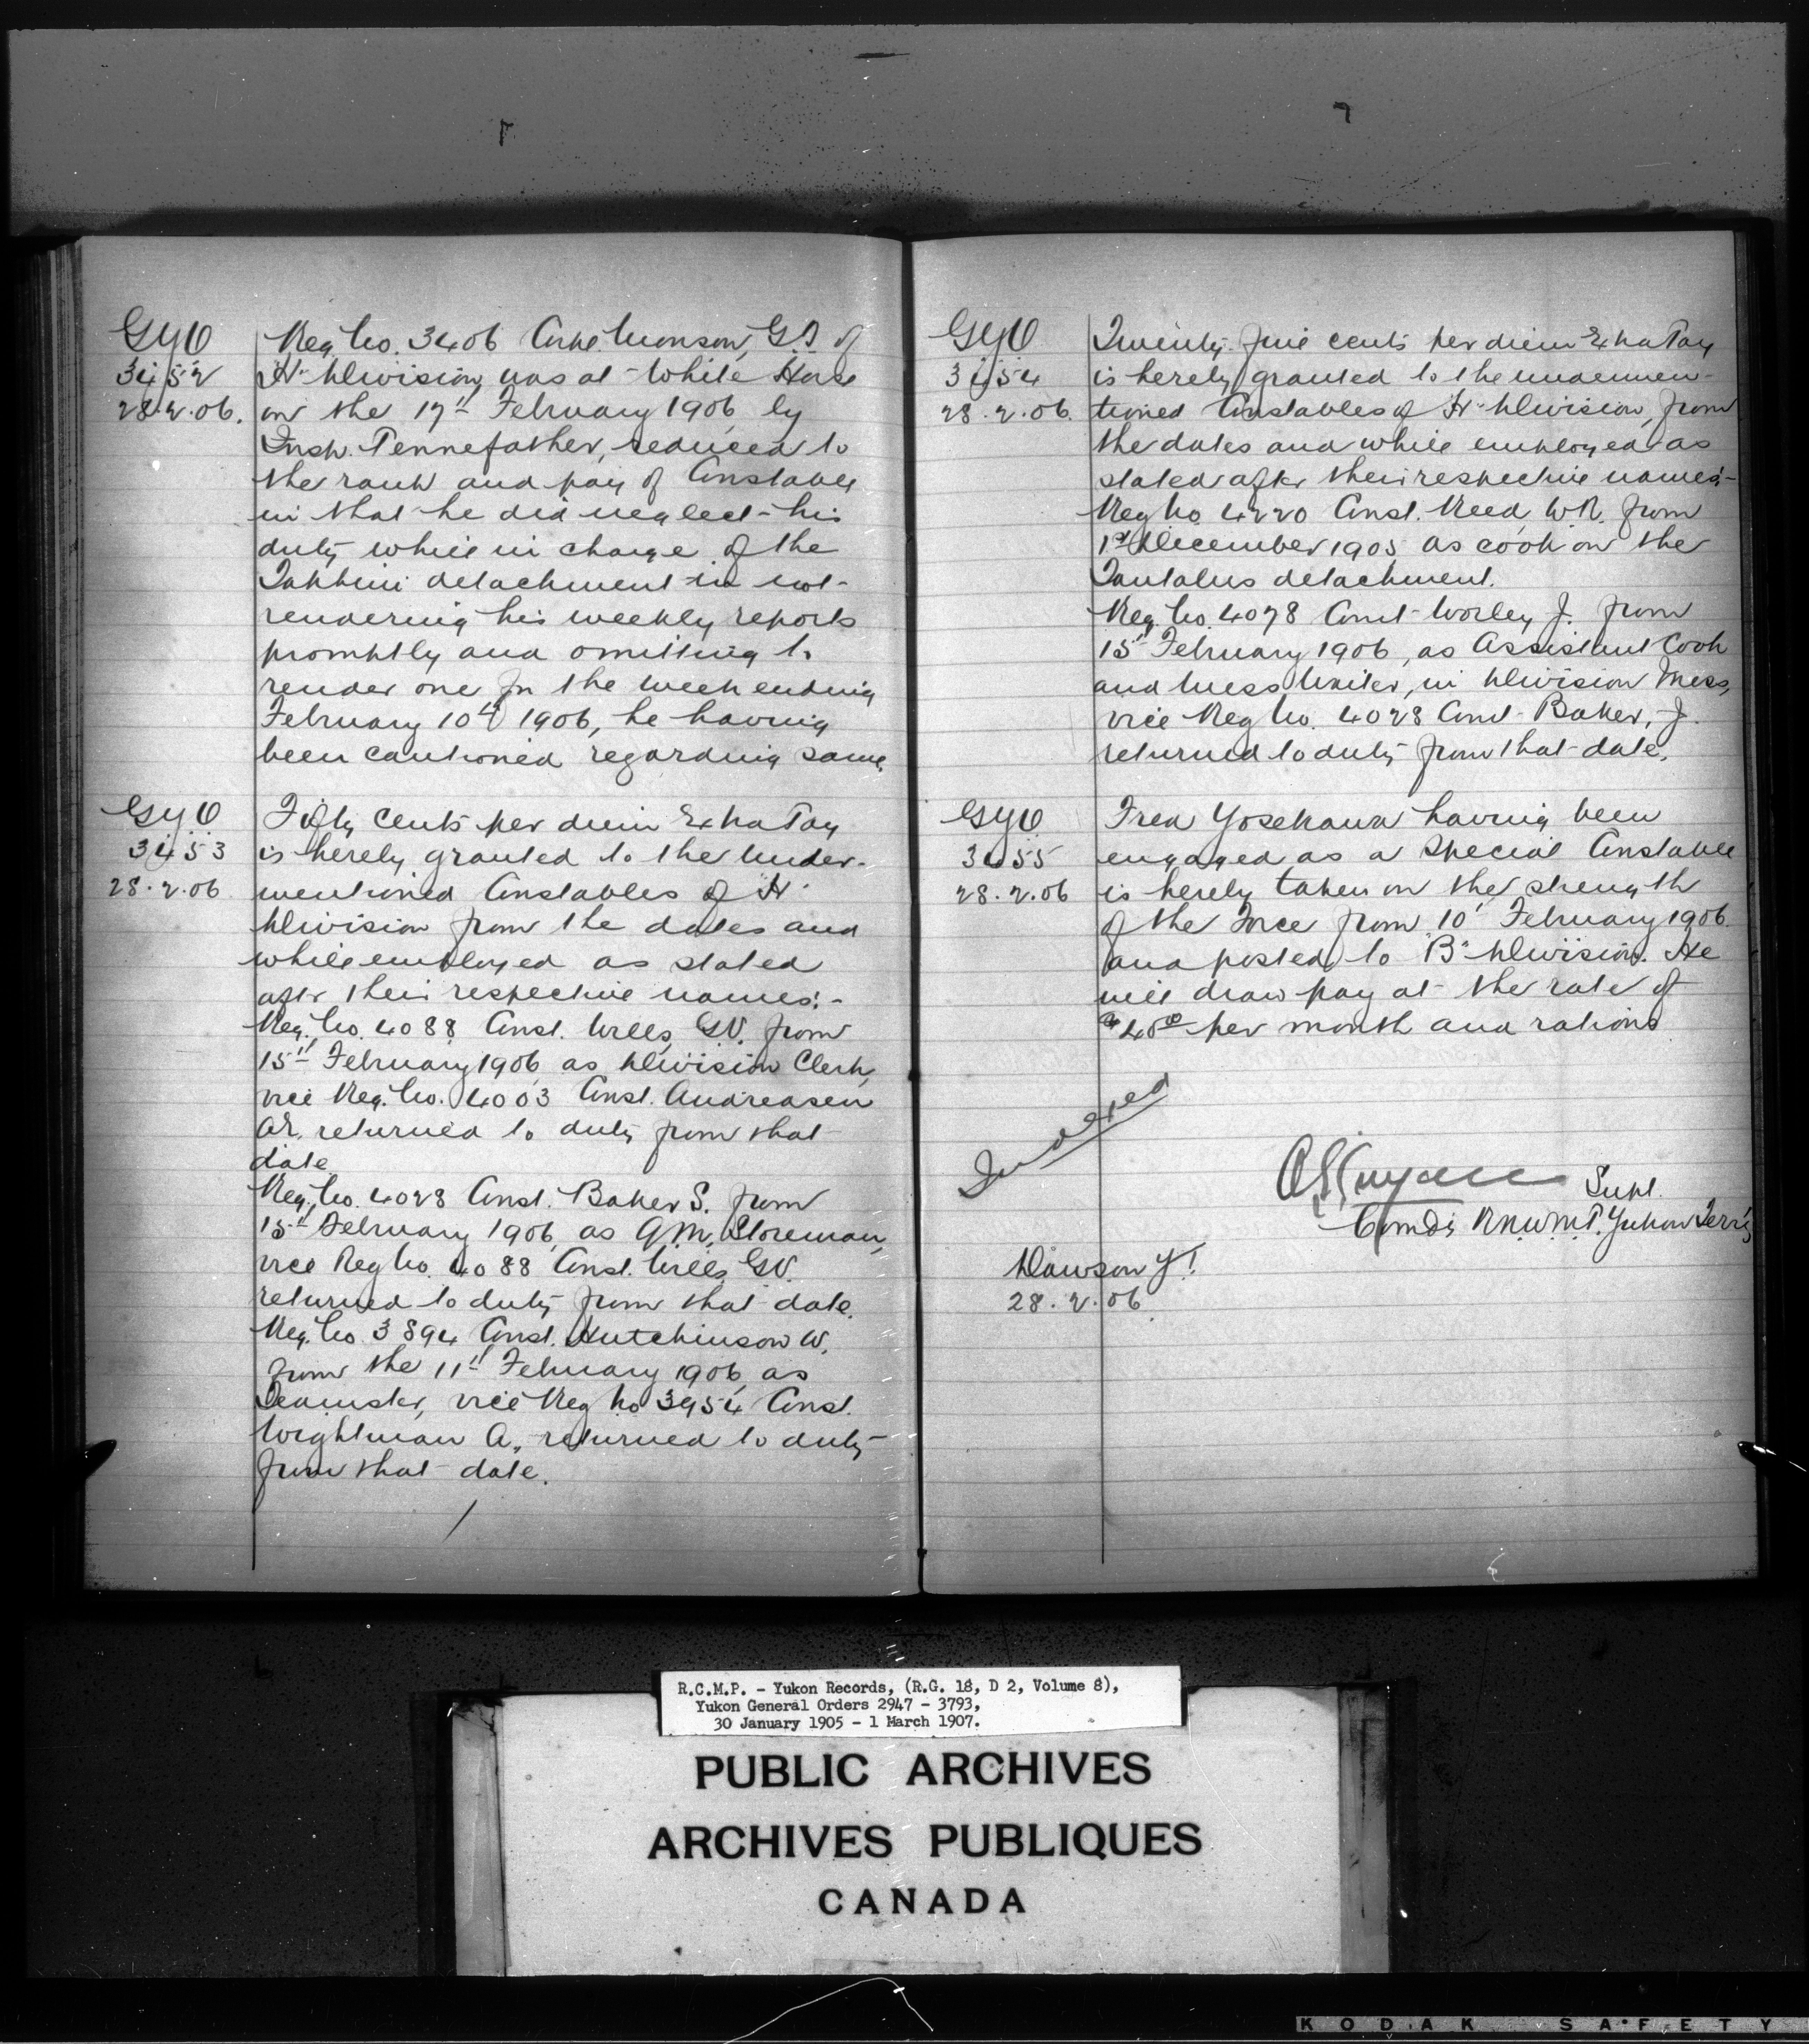 GYO
3452
28.2.06.
Reg. No. 3406 Corpl. Monson, G.I. of
"H" Division, was at White Horse
on the 17th February 1906, by
Insp. Pennefather, reduced to
the rank and pay of Constable
in that he did neglect his
duty while in charge of the
Takhini detachment in not
rendering his weekly reports
promptly and omitting to
render one for the week ending
February 10th 1906, he having
been cautioned regarding same.
GYO
3453
28.2.06
Fifty cents per diem Extra Pay
is hereby granted to the under-
mentioned Constables of "H"
Division from the dates and
while employed as stated
after their respective names:-
Reg. No. 4088 Const. Wells, G.V. from
15th February 1906, as Division Clerk,
vice Reg. No. 4003 Const. Andreasen
A.E. returned to duty from that
date.
Reg. No. 4028 Const. Baker S. from
15th February 1906, as Q.M. Storeman,
vice Reg No. 4088 Const. Wells, G.V.
returned to duty from that date.
Reg. No. 3894 Const. Hutchinson W.
from the 11th February 1906, as
Teamster, vice Reg No 3954 Const.
Wightman A., returned to duty
from that date.
GYO
3454
28.2.06.
Twenty-five cents per diem Extra Pay
is hereby granted to the undermen-
tioned Constables of "H" Division, from
the dates and while employed as
stated after their respective names:-
Reg No. 4220 Const. Reed, W.R. from
1st December 1905 as cook on the
Tantalus detachment.
Reg. No. 4078 Const. Worley J. from
15th February 1906, as Assistant Cook
and Mess Waiter, in Division Mess,
vice Reg No. 4028 Const. Baker, J.
returned to duty from that date.
GYO
3455
28.2.06
Fred Yosekawa having been
engaged as a Special Constable
is hereby taken on the strength
of the Force from 10th February 1906
and posted to "B" Division. He
will draw pay at the rate of
$40.00 per month and rations
Indexed
Supt.
Comdg R.N.W.M.P. Yukon Terr'y
Dawson Y.T.
28.2.06
R.C.M.P. - Yukon Records, (R.G. 18, D 2, Volume 8),
Yukon General Orders 2947 - 3793,
30 January 1905 - 1 March 1907.
PUBLIC ARCHIVES
ARCHIVES PUBLIQUES
CANADA
KODAK SAFETY